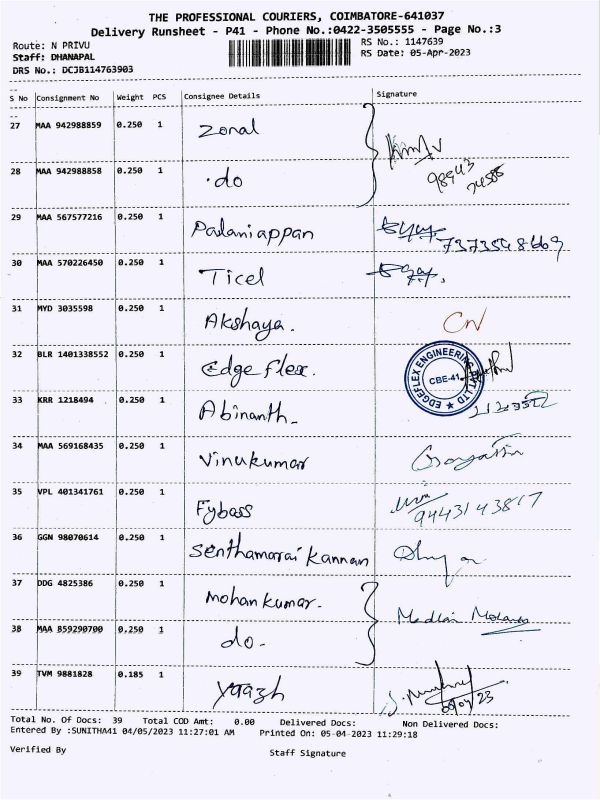 THE PROFESSIONAL COURIERS, COIMBATORE-641037
Delivery Runsheet - P41 - Phone No.:0422-3505555 - Page No.:3
Route: N PRIVU
RS No.: 1147639
Staff: DHANAPAL
RS Date: 05-Apr-2023
DRS No.: DCJB114763903
S No Consignment No Weight PCS Consignee Details Signature
27 MAA 942988859 0.250 1 Zonal
28 MAA 942988858 0.250 1 .do
98943
74585
29 MAA 567577216 0.250 1 Palaniappan
7373548669
30 MAA 570226450 0.250 1 Ticel
31 MYD 3035598 0.250 1 Akshaya. CN
32 BLR 1401338552 0.250 1 Edge flex.
EDGEFLEX ENGINEERING PVT LTD
CBE-41
33 KRR 1218494 0.250 1 Abinanth-
34 MAA 569168435 0.250 1 Vinukumar
35 VPL 401341761 0.250 1 Fybass
9443143817
36 GGN 98070614 0.250 1 Senthamarai Kannan
37 DDG 4825386 0.250 1 Mohan kumar.
38 MAA 859290700 0.250 1 do.
39 TVM 9881828 0.185 1 Yaazh
Total No. Of Docs: 39 Total COD Amt: 0.00 Delivered Docs: Non Delivered Docs:
Entered By :SUNITHA41 04/05/2023 11:27:01 AM Printed On: 05-04-2023 11:29:18
Verified By Staff Signature